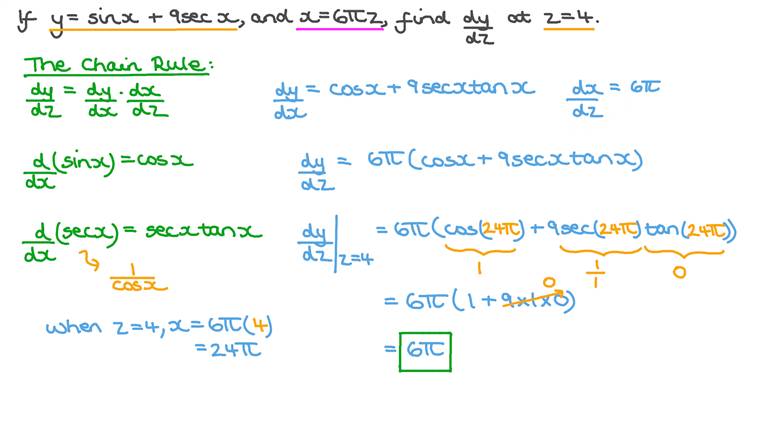 If y = sinx + 9secx, and x = 6πz, find dy/dz at z = 4.
The Chain Rule:
dy/dz = dy/dx · dx/dz
dy/dx = cosx + 9secxtanx
dx/dz = 6π
d/dx (sinx) = cosx
dy/dz = 6π(cosx + 9secxtanx)
d/dx (secx) = secxtanx
1/cosx
when z = 4, x = 6π(4)
= 24π
dy/dz |z=4 = 6π(cos(24π) + 9sec(24π)tan(24π))
1 1/1 0
= 6π(1 + 9x1x0) 0
= 6π